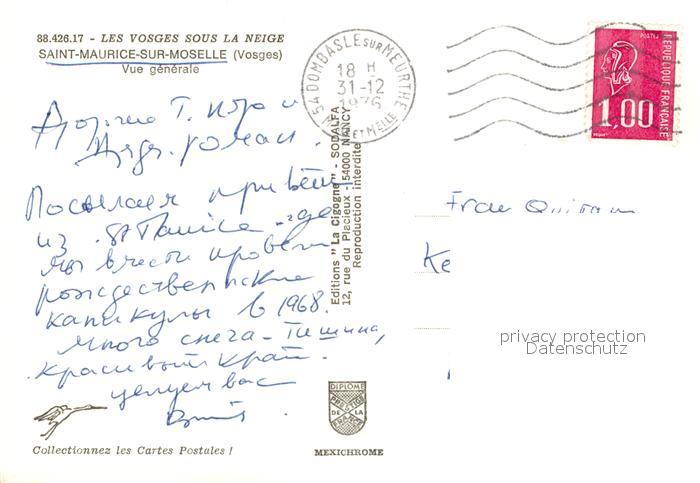 88.426.17 - LES VOSGES SOUS LA NEIGE
SAINT-MAURICE-SUR-MOSELLE (Vosges)
Vue générale
Дорогие Т.
Посылаем привет
из St Maurice - где
мы вместе провели
рождественские
каникулы в 1968.
Много снега - тишина,
красивый край.
целуем вас
Collectionnez les Cartes Postales !
54 DOMBASLE SUR MEURTHE
18 H
31-12
1976
ET MELLE
Editions "La Cigogne" - SODALFA
12, rue du Placieux - 54000 NANCY
Reproduction interdite
DIPLOME
DE LA
FRANCE
MEXICHROME
POSTES
REPUBLIQUE FRANÇAISE
1,00
Frau
Ke
privacy protection
Datenschutz